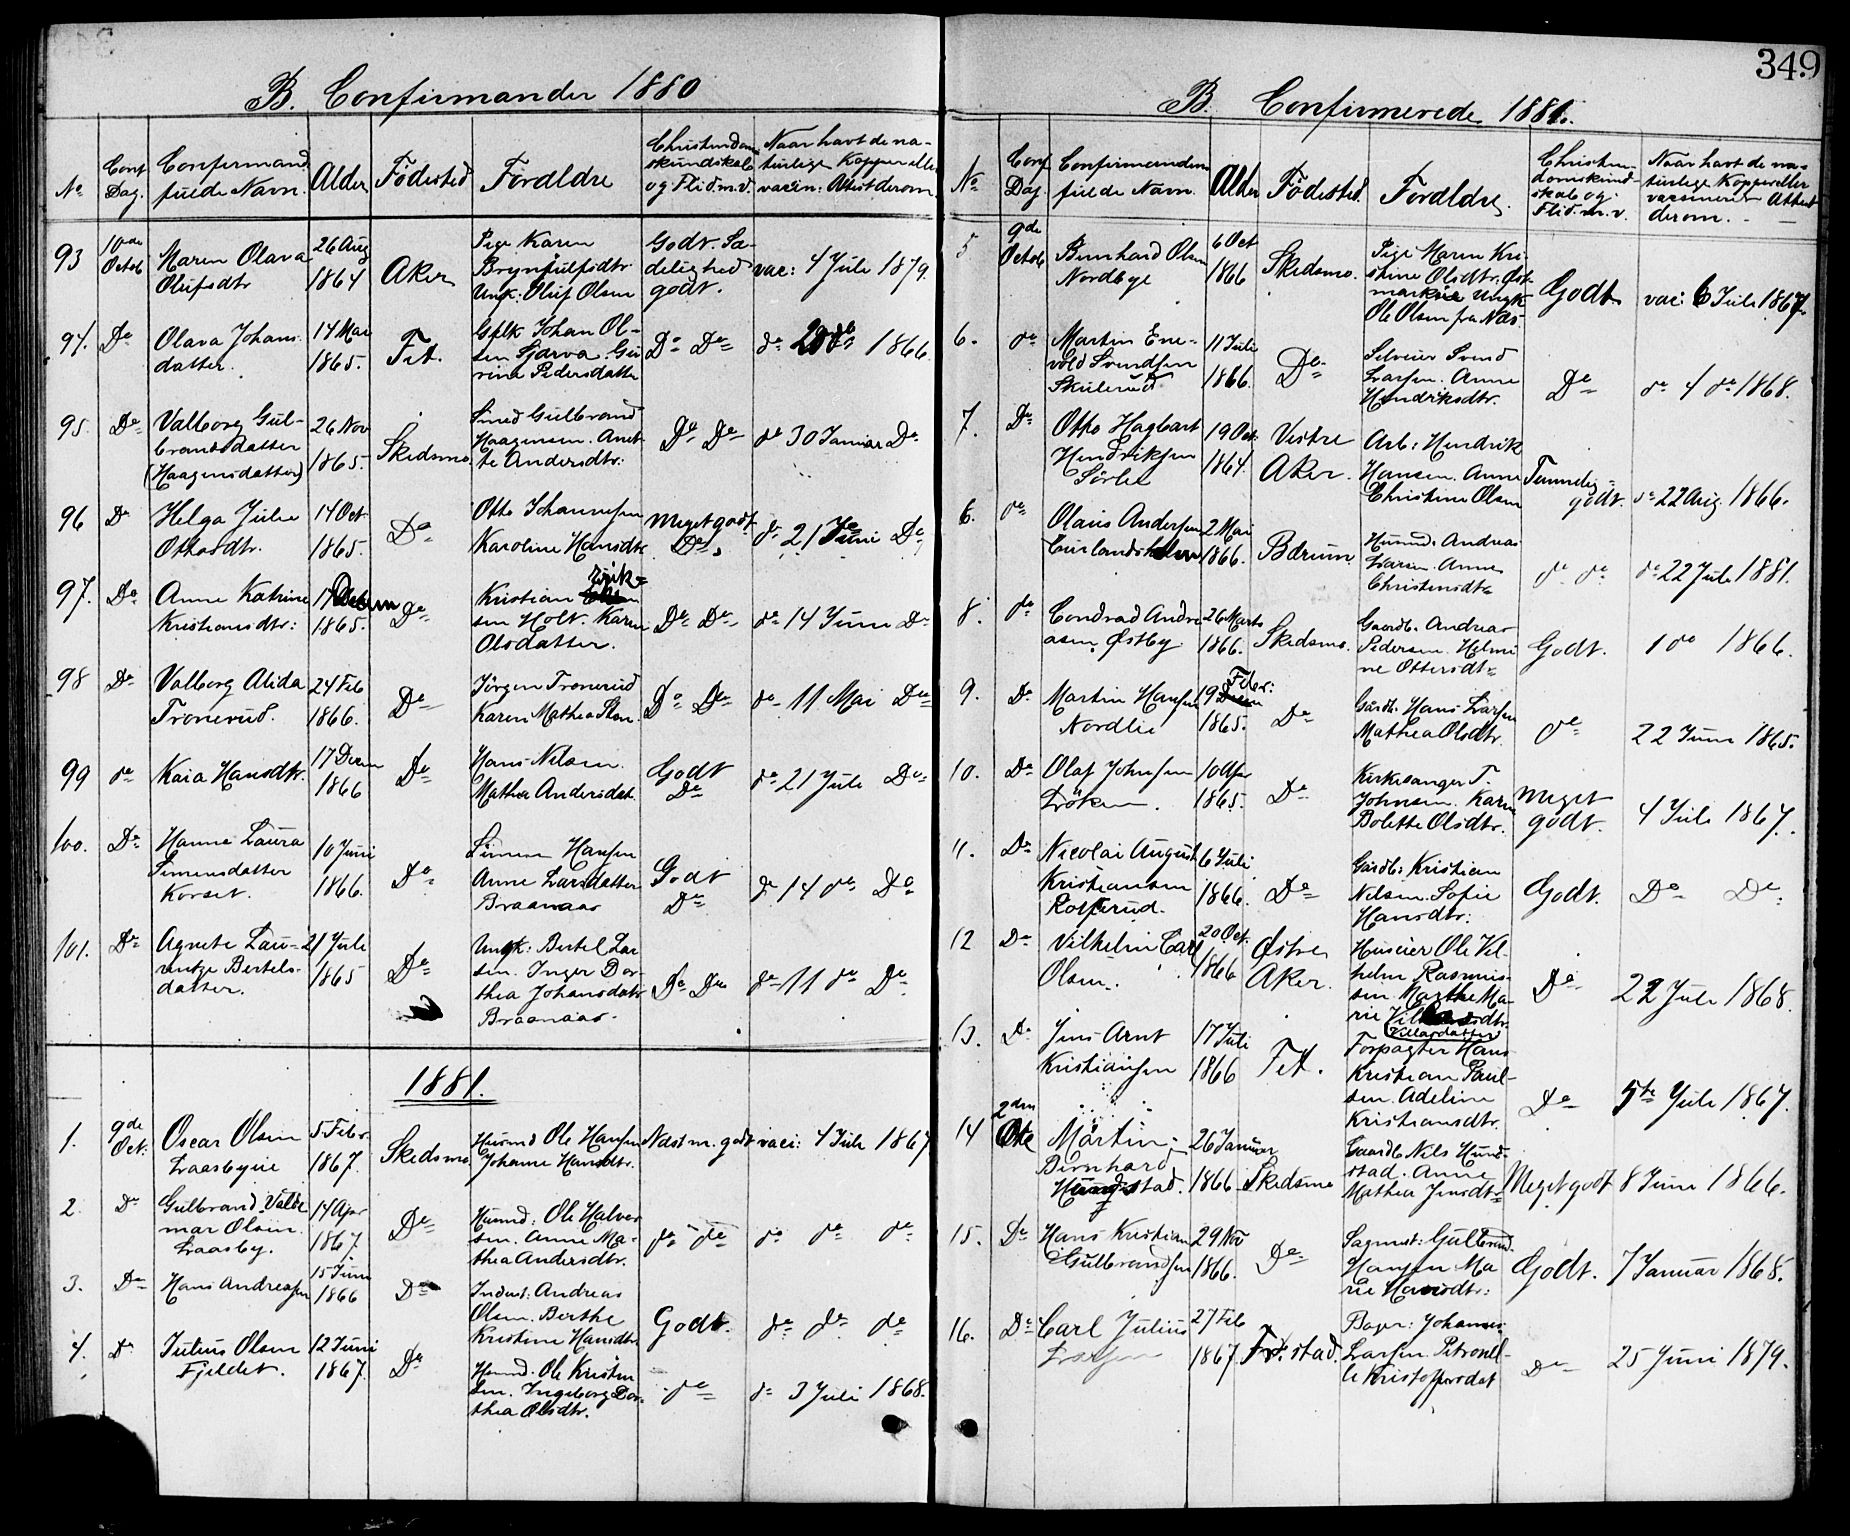 349
B. Confirmander 1880
No
Conf Dag.
Confirmand fulde Navn.
Alder
Födested
Forældre
Christendom skundskab og Flid m.v.
Naar havt de na- turlige Kopper eller vaccin: Attest derom.
93 10de Octob Maren Olava 26 Aug Aker Pige Karen Godt. Sæ- vac: 4 Juli 1879.
Olufsdtr 1864 Brynfulfsdtr delighed
Ungk. Oluf Olsen godt.
94. Do Olava Johans 14 Mai Fet. Gflk Johan Ol- Do Do do 1866.
datter. 1865. sen Gu-
rina Pedersdatter
95. Do Valborg Gul- 26 Nov Skedsmo. Smed Gulbrand Do Do do 30 Januar Do
brandsdatter 1865. Haagensen. Anet-
(Haagensdatter) te Andersdtr.
96 Do Helga Julie 14 Oct Do Otto Johannesen Meget godt do 21 Juni Do
Ottosdtr. 1865. Karoline Hansdtr Do
97. Do Anne Katrine 17 Do Kristian Erik- Do Do do 14 Juni Do
Kristiansdtr: 1865. sen Holt. Karen
Olsdatter.
98 Do Valborg Alida 24 Feb Do Jörgen Tronerud Do Do do 11 Mai Do
Tronerud. 1866. Karen Mathea
99 do Kaia Hansdtr. 17 Decem Do Hans Nilsen. Godt do 21 Juli Do
1866 Mathea Andersdat. Do
100. Do Hanne Laura 10 Juni Do Simen Hansen Godt do 14 do Do
Simensdatter 1866. Anne Larsdatter Do
Korset. Braanaas
101. Do Agnete Lau- 21 Juli Do Ungk: Bertel Lar Do Do do 11 do Do
rentze Bertels- 1865 sen. Inger Dor-
datter. thea Johansdatr
Braanaas.
1881.
1. 9de Oct. Oscar Olsen 5 Febr. Skedsmo. Husmd Ole Hansen Næst m. godt vacc: 4 Juli 1867
Laasbyeie 1867. Johanne Hansdtr.
2. Do Gulbrand Valde 14 Apr Do Husmd: Ole Halvor do do do do do
mar Olsen. 1867. sen. Anne Ma-
Laasby. thea Andersdtr.
3. Do Hans Andreasen 15 Juni Do Inderst: Andreas Godt. do do do
1866 Olsen. Berthe
Kristine Hansdtr
4. Do Julius Olsen 12 Juni Do Husmd. Ole Kristen do do 3 Juli 1868.
Fjeldet. 1867. sen. Ingeborg Dor-
thea Olsdtr.
B. Confirmerede 1881.
No
Conf Dag
Confirmanden fulde Navn.
Alder
Födested.
Forældre.
Christen- domskund- skab og Flid. m.v.
Naar havt de na- turlige Kopper eller vaccineret Attest derom.
5 9de Octob Bernhard Olsen 6 Oct Skedsmo. Pige Maren Kri- Godt vac: 6 Juli 1867.
Nordbye 1866 stine Olsdtr. Øst-
marken Ungk
Ole Olsen fra Næs
6. do Martin Ene- 11 Juli Do Selveier Svend Do do 4 do 1868.
vold Svendsen 1866. Larsen. Anne
Skulerud Hendriksdtr.
7. Do Otto Hagbart 19 Oct. Vestre Arb: Hendrik Temmelig- do 22 Aug 1866.
Hendriksen 1864. Aker. Hansen. Anne godt.
Sörlie Christine Olsen
6. do Olaus Andersen 2 Mai Bærum Husmd. Andreas do do do 22 Juli 1881.
1866. Larsen. Anne
Christensdtr
8. do Condrad Andre 26 Marts Skedsmo. Gaardb. Andreas Godt. 1 do 1866.
asen Østby 1866. Pedersen. Helmi
ne Ottersdtr
9. Do Martin Hansen 19 Feb: Do Gårdb. Hans Larsen do 22 Juni 1865.
Nordlie 1865. Mathea Olsdtr.
10. Do Olaf Johnsen 10 Apr Do Kirkesanger T. Meget 4 Juli 1867.
Löken. 1865. Johnsen. Karen godt.
Bolette Olsdtr.
11. Do Nicolai August 6 Juli Do Gårdb: Kristian Godt. Do Do
Kristiansen 1866. Nilsen. Sofie
Rolferud. Hansdtr:
12 Do Vilhelm Carl 20 Oct. Østre Huseier Ole Vil- Do 22 Juli 1868
Olsen. 1866 Aker. helm Rasmus-
sen Marthe Ma
rie
Villasdatter
13. Do Jens Arnt 17 Juli Fet. Forpagter Hans Do 5te Juli 1867.
Kristiansen 1866 Kristian Paul-
sen. Adeline
Kristiansdtr.
14 2den Okt Martin 26 Januar Skedsmo Gaardb Nils Hund- Meget godt 8 Juni 1866.
Bernhard 1866 stad. Anne
Hungstad. Mathea Jensdtr
15. Do Hans Kristian 29 Nov Do Sagmest: Gulbrand Godt. 7 Januar 1868.
Gulbrandsen 1866. Hansen Ma
rie Hansdtr:
16. Do Carl Julius 27 Feb Fr. stad. Bager: Johannes Do 25 Juni 1879.
Larsen 1867 Larsen. Petronel-
le Kristoffersdat